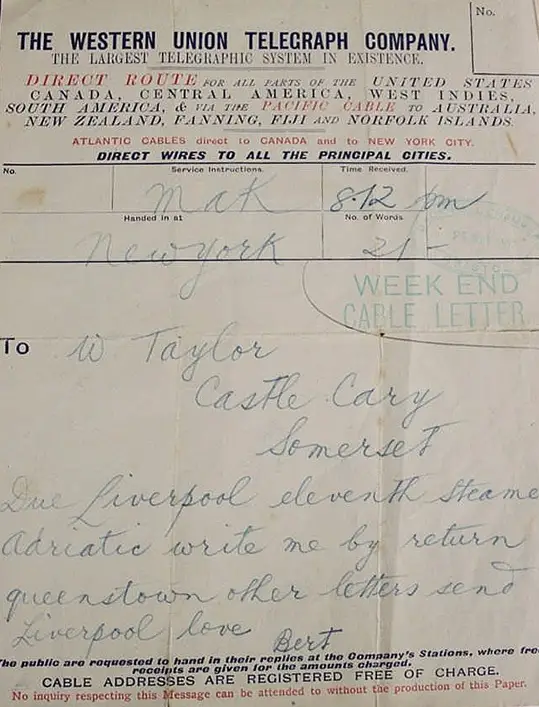 No.
THE WESTERN UNION TELEGRAPH COMPANY.
THE LARGEST TELEGRAPHIC SYSTEM IN EXISTENCE.
DIRECT ROUTE FOR ALL PARTS OF THE UNITED STATES
CANADA, CENTRAL AMERICA, WEST INDIES,
SOUTH AMERICA, & VIA THE PACIFIC CABLE TO AUSTRALIA,
NEW ZEALAND, FANNING, FIJI AND NORFOLK ISLANDS.
ATLANTIC CABLES direct to CANADA and to NEW YORK CITY.
DIRECT WIRES TO ALL THE PRINCIPAL CITIES.
No. Service Instructions. Time Received.
Mak 8.12 pm
Handed in at No. of Words
New York 21
WEEK END
CABLE LETTER
To W Taylor
Castle Cary
Somerset
Due Liverpool eleventh steame
Adriatic write me by return
queenstown other letters send
Liverpool love Bert
The public are requested to hand in their replies at the Company's Stations, where free
receipts are given for the amounts charged.
CABLE ADDRESSES ARE REGISTERED FREE OF CHARGE.
No inquiry respecting this Message can be attended to without the production of this Paper.